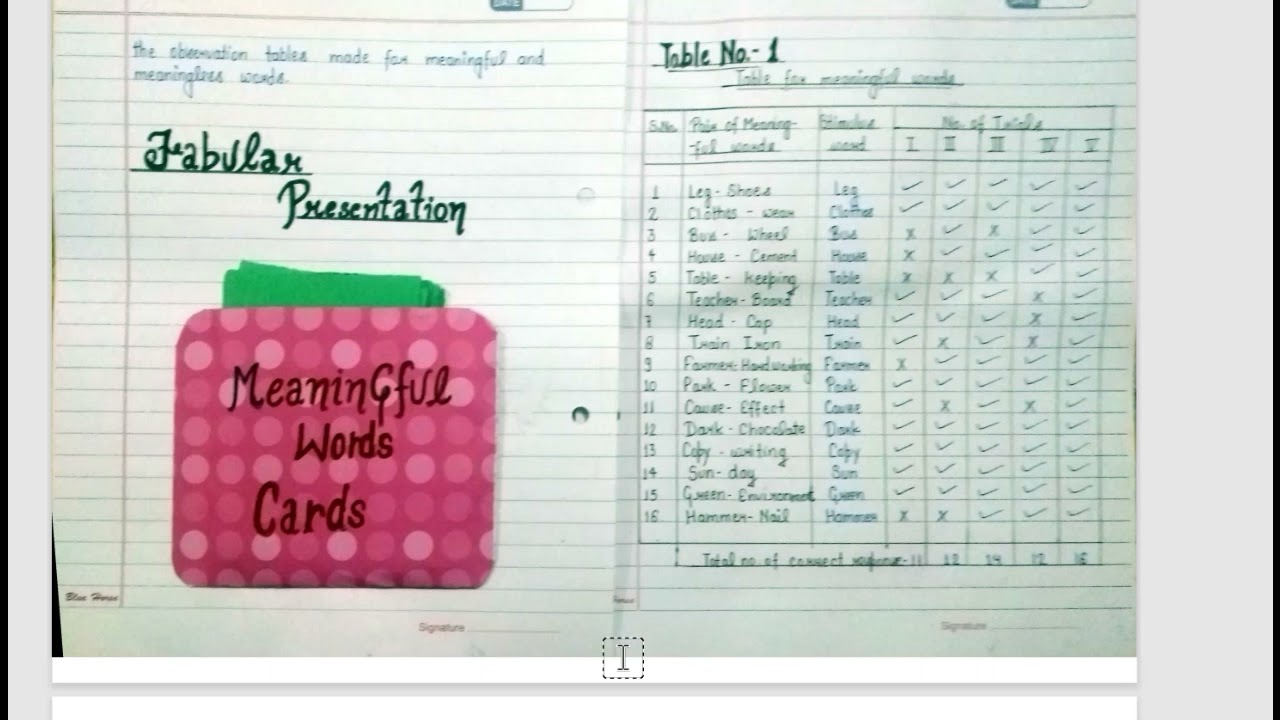 DATE
the observation tables made for meaningful and
meaningless words.
Tabular
Presentation
MeaninGful
Words
Cards
Blue Horse
Signature
Table No.- 1
Table for meaningful words
S.No. Pair of Meaning- Stimulus No. of Trials
-ful words word I II III IV V
1 Leg - Shoes Leg ✓ ✓ ✓ ✓ ✓
2 Clothes - wear Clothes ✓ ✓ ✓ ✓ ✓
3 Bus - Wheel Bus x ✓ x ✓ ✓
4 House - Cement House x ✓ ✓ ✓ ✓
5 Table - keeping Table x x x ✓ ✓
6 Teacher - Board Teacher ✓ ✓ ✓ x ✓
7 Head - Cap Head ✓ ✓ ✓ x ✓
8 Train Iron Train ✓ x ✓ x ✓
9 Farmer- Hardworking Farmer x ✓ ✓ ✓ ✓
10 Park - Flower Park ✓ ✓ ✓ ✓ ✓
11 Cause- Effect Cause ✓ x ✓ x ✓
12 Dark - Chocolate Dark ✓ ✓ ✓ ✓ ✓
13 Copy - writing Copy ✓ ✓ ✓ ✓ ✓
14 Sun- day Sun ✓ ✓ ✓ ✓ ✓
15 Green- Enviroment Green ✓ ✓ ✓ ✓ ✓
16 Hammer- Nail Hammer x x ✓ ✓ ✓
Total no of correct response- 11 12 14 12 16
Signature